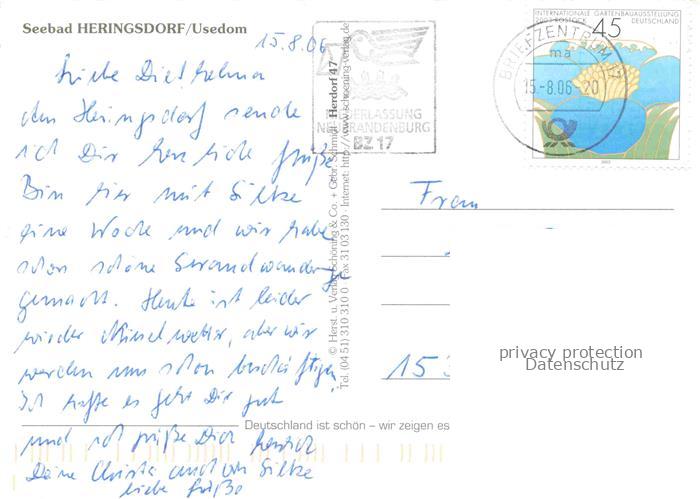 Seebad HERINGSDORF/Usedom
15.8.06
Liebe Diethelma
aus Heringsdorf sende
ich Dir herzliche Grüße
Bin hier mit Silke
eine Woche und wir habe
schon schöne Strandwanderge
gemacht. Heute ist leider
wieder Nieselwetter, aber wir
werden uns schon beschäftigen
Ich hoffe es geht Dir gut
und ich grüße Dich herzlich
Deine Christa und von Silke
liebe Grüße
© Herst. u. Verlag Schöning & Co. + Gebr. Schmidt · Herdorf 47
Tel. (04 51) 310 310 0 · Fax 31 03 130 · Internet: http://www.schoening-verlag.de
Deutschland ist schön – wir zeigen es
NIEDERLASSUNG
NEUBRANDENBURG
BZ 17
BRIEFZENTRUM 17
ma
15.-8.06-20
INTERNATIONALE GARTENBAUAUSSTELLUNG
2003 ROSTOCK
DEUTSCHLAND
45
2003
Frau
15
privacy protection
Datenschutz